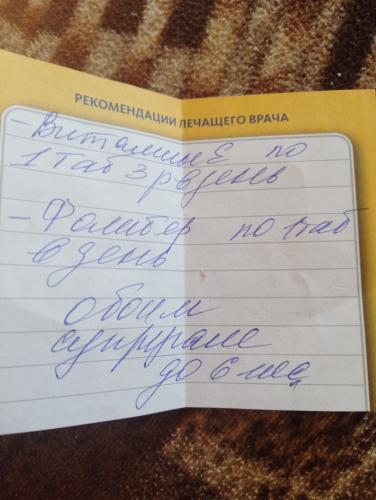 РЕКОМЕНДАЦИИ ЛЕЧАЩЕГО ВРАЧА
- Витамин Е по
1 таб 3 р в день
- Фолибер по 1 таб
в день
обоим
супругам
до 6 мес